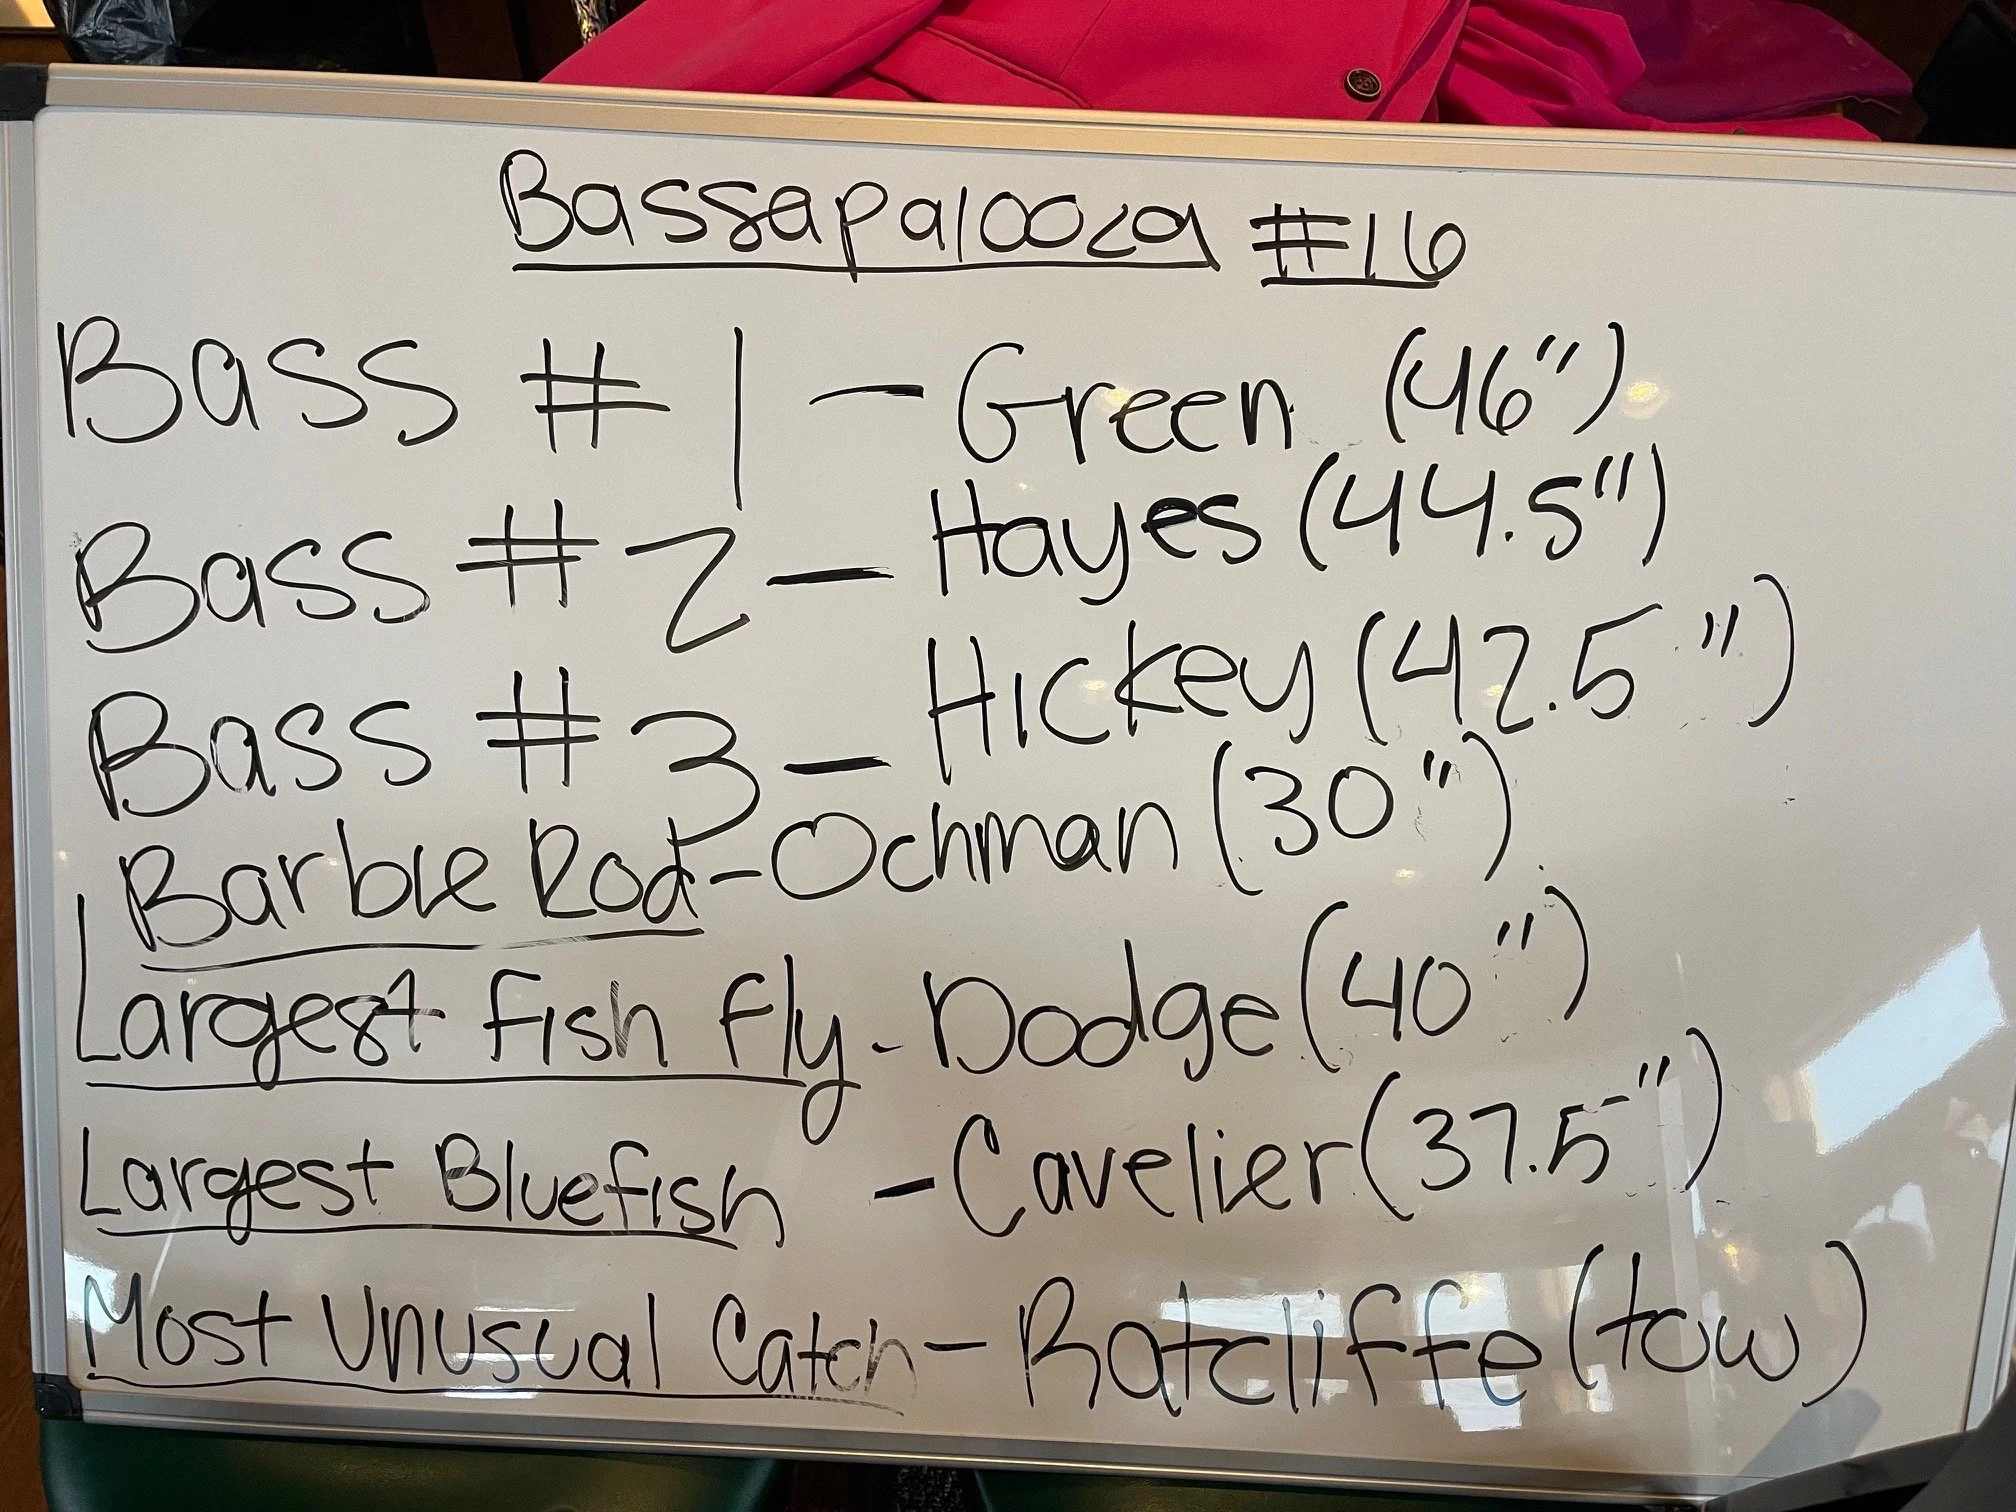 Bassapalooza #16
Bass #1 - Green (46")
Bass #2 - Hayes (44.5")
Bass #3 - Hickey (42.5")
Barbie Rod - Ochman (30")
Largest Fish Fly - Dodge (40")
Largest Bluefish - Cavelier (37.5")
Most Unusual Catch - Ratcliffe (tow)